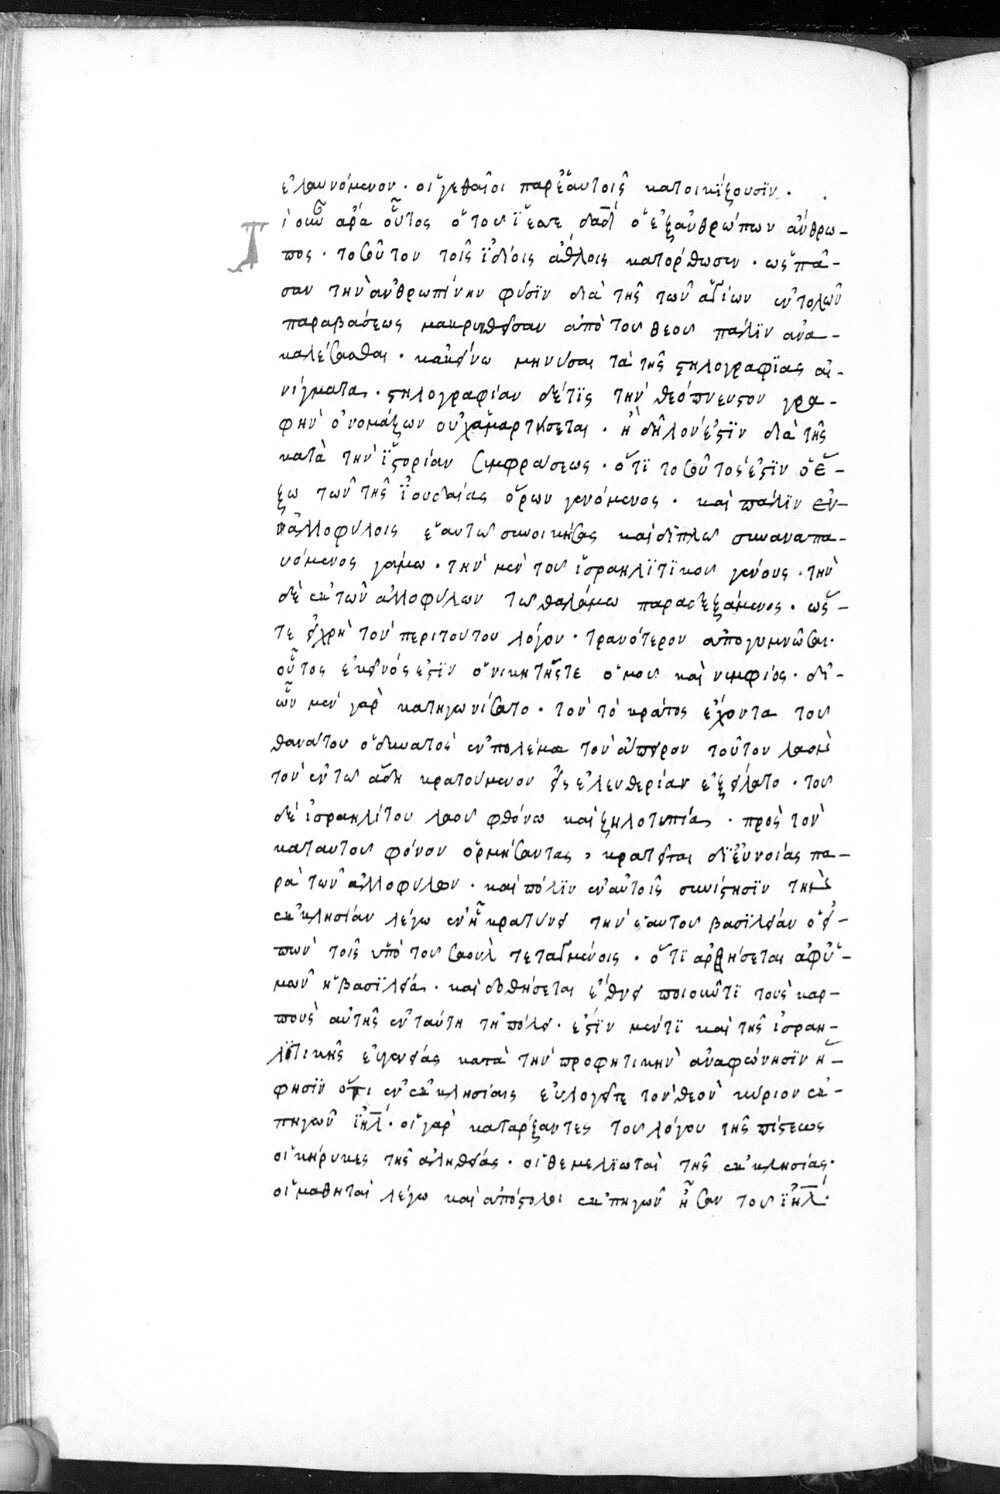 ἐλαυνόμενον · οἱ γεθαῖοι παρ' ἑαυτοῖς κατοικίζουσϊν ·
Τ ίς οὖν ἄρα οὗτος ὁ τοῦ ἰεσσαὶ δᾱδ ὁ ἐξ ἀνθρώπων ἄνθρω-
πος · τοσοῦτον τοῖς ἰδίοις ἄθλοις κατορθώσων · ὡς πᾶ-
σαν τὴν ἀνθρωπίνην φύσϊν διὰ τῆς τῶν ἁγίων ἐντολῶν
παραβάσεως μακρυνθεῖσαν ἀπὸ τοῦ θεοῦ πάλϊν ἀνα-
καλέσασθαι · κἀκείνω μηνύσαι τὰ τῆς στηλογραφΐας αἰ-
νίγματα · στηλογραφίαν δέ τϊς τὴν θεόπνευστον γρα-
φὴν ὀνομάζων οὐχ ἁμαρτήσεται · ἢ δῆλον ἐστϊν διὰ τῆς
κατὰ τὴν ἱστορίαν συμφράσεως · ὅτϊ τοσοῦτός ἐστϊν ὁ ἔ-
ξω τῶν τῆς ἰουδαίας ὅρων γενόμενος · καὶ πάλϊν ἐν
ἀλλοφύλοις ἑαυτῶ συνοικήσας καὶ διπλῶ συναναπα-
υόμενος γάμω · τὴν μὲν τοῦ ἰσραηλϊτικοῦ γένους · τὴν
δὲ ἐκ τῶν ἀλλοφύλων τῶ θαλάμω παραδεξάμενος · ὥσ-
τε εἰ χρὴ τὸν περὶ τούτου λόγον · τρανότερον ἀπογυμνῶσαι ·
οὗτος ἐκεῖνός ἐστϊν ὁ νικητής τε ὁμοῦ καὶ νυμφίος · δι'
ὧν μὲν γὰρ κατηγωνίσατο · τὸν τὸ κράτος ἔχοντα τοῦ
θανάτου ὁ δυνατὸς ἐν πολέμω τὸν ἄπειρον τοῦτον λαὸν
τὸν ἐν τῶ ἅδη κρατούμενον εἰς ἐλευθερίαν ἐξείλατο · τοῦ
δὲ ἰσραηλίτου λαοῦ φθόνω καὶ ζηλοτυπία · πρὸς τὸν
κατ' αὐτοῦ φόνον ὁρμήσαντος, κρατεῖται δι' εὐνοίας πα-
ρὰ τῶν ἀλλοφύλων · καὶ πόλϊν ἐν αὐτοῖς συνίστησϊν τὴν
ἐκκλησίαν λέγω ἐν ἧ κρατύνει τὴν ἑαυτοῦ βασϊλείαν ὁ εἰ-
πὼν τοῖς ὑπὸ τοῦ σαοὺλ τεταγμένοις · ὅτϊ ἀρθήσεται ἀφ' ὑ-
μῶν ἡ βασϊλεία · καὶ δοθήσεται ἔθνει ποιοῦντϊ τοὺς καρ-
ποὺς αὐτῆς ἐν ταύτη τῆ πόλει · ἐστϊν μέντϊ καὶ τῆς ἰσραη-
λϊτικῆς εὐγενείας κατὰ τὴν προφητικὴν ἀναφώνησϊν ἥ
φησϊν ὅτι ἐν ἐκκλησίαις εὐλογεῖτε τὸν θεὸν κύριον ἐκ
πηγῶν ἰηλ̄ · οἱ γὰρ κατάρξαντες τοῦ λόγου τῆς πίστεως
οἱ κήρυκες τῆς ἀληθείας · οἱ θεμελϊωταὶ τῆς ἐκκλησίας ·
οἱ μαθηταὶ λέγω καὶ ἀπόστολοι ἐκ πηγῶν ἦσαν τοῦ ἰηλ̄ ·